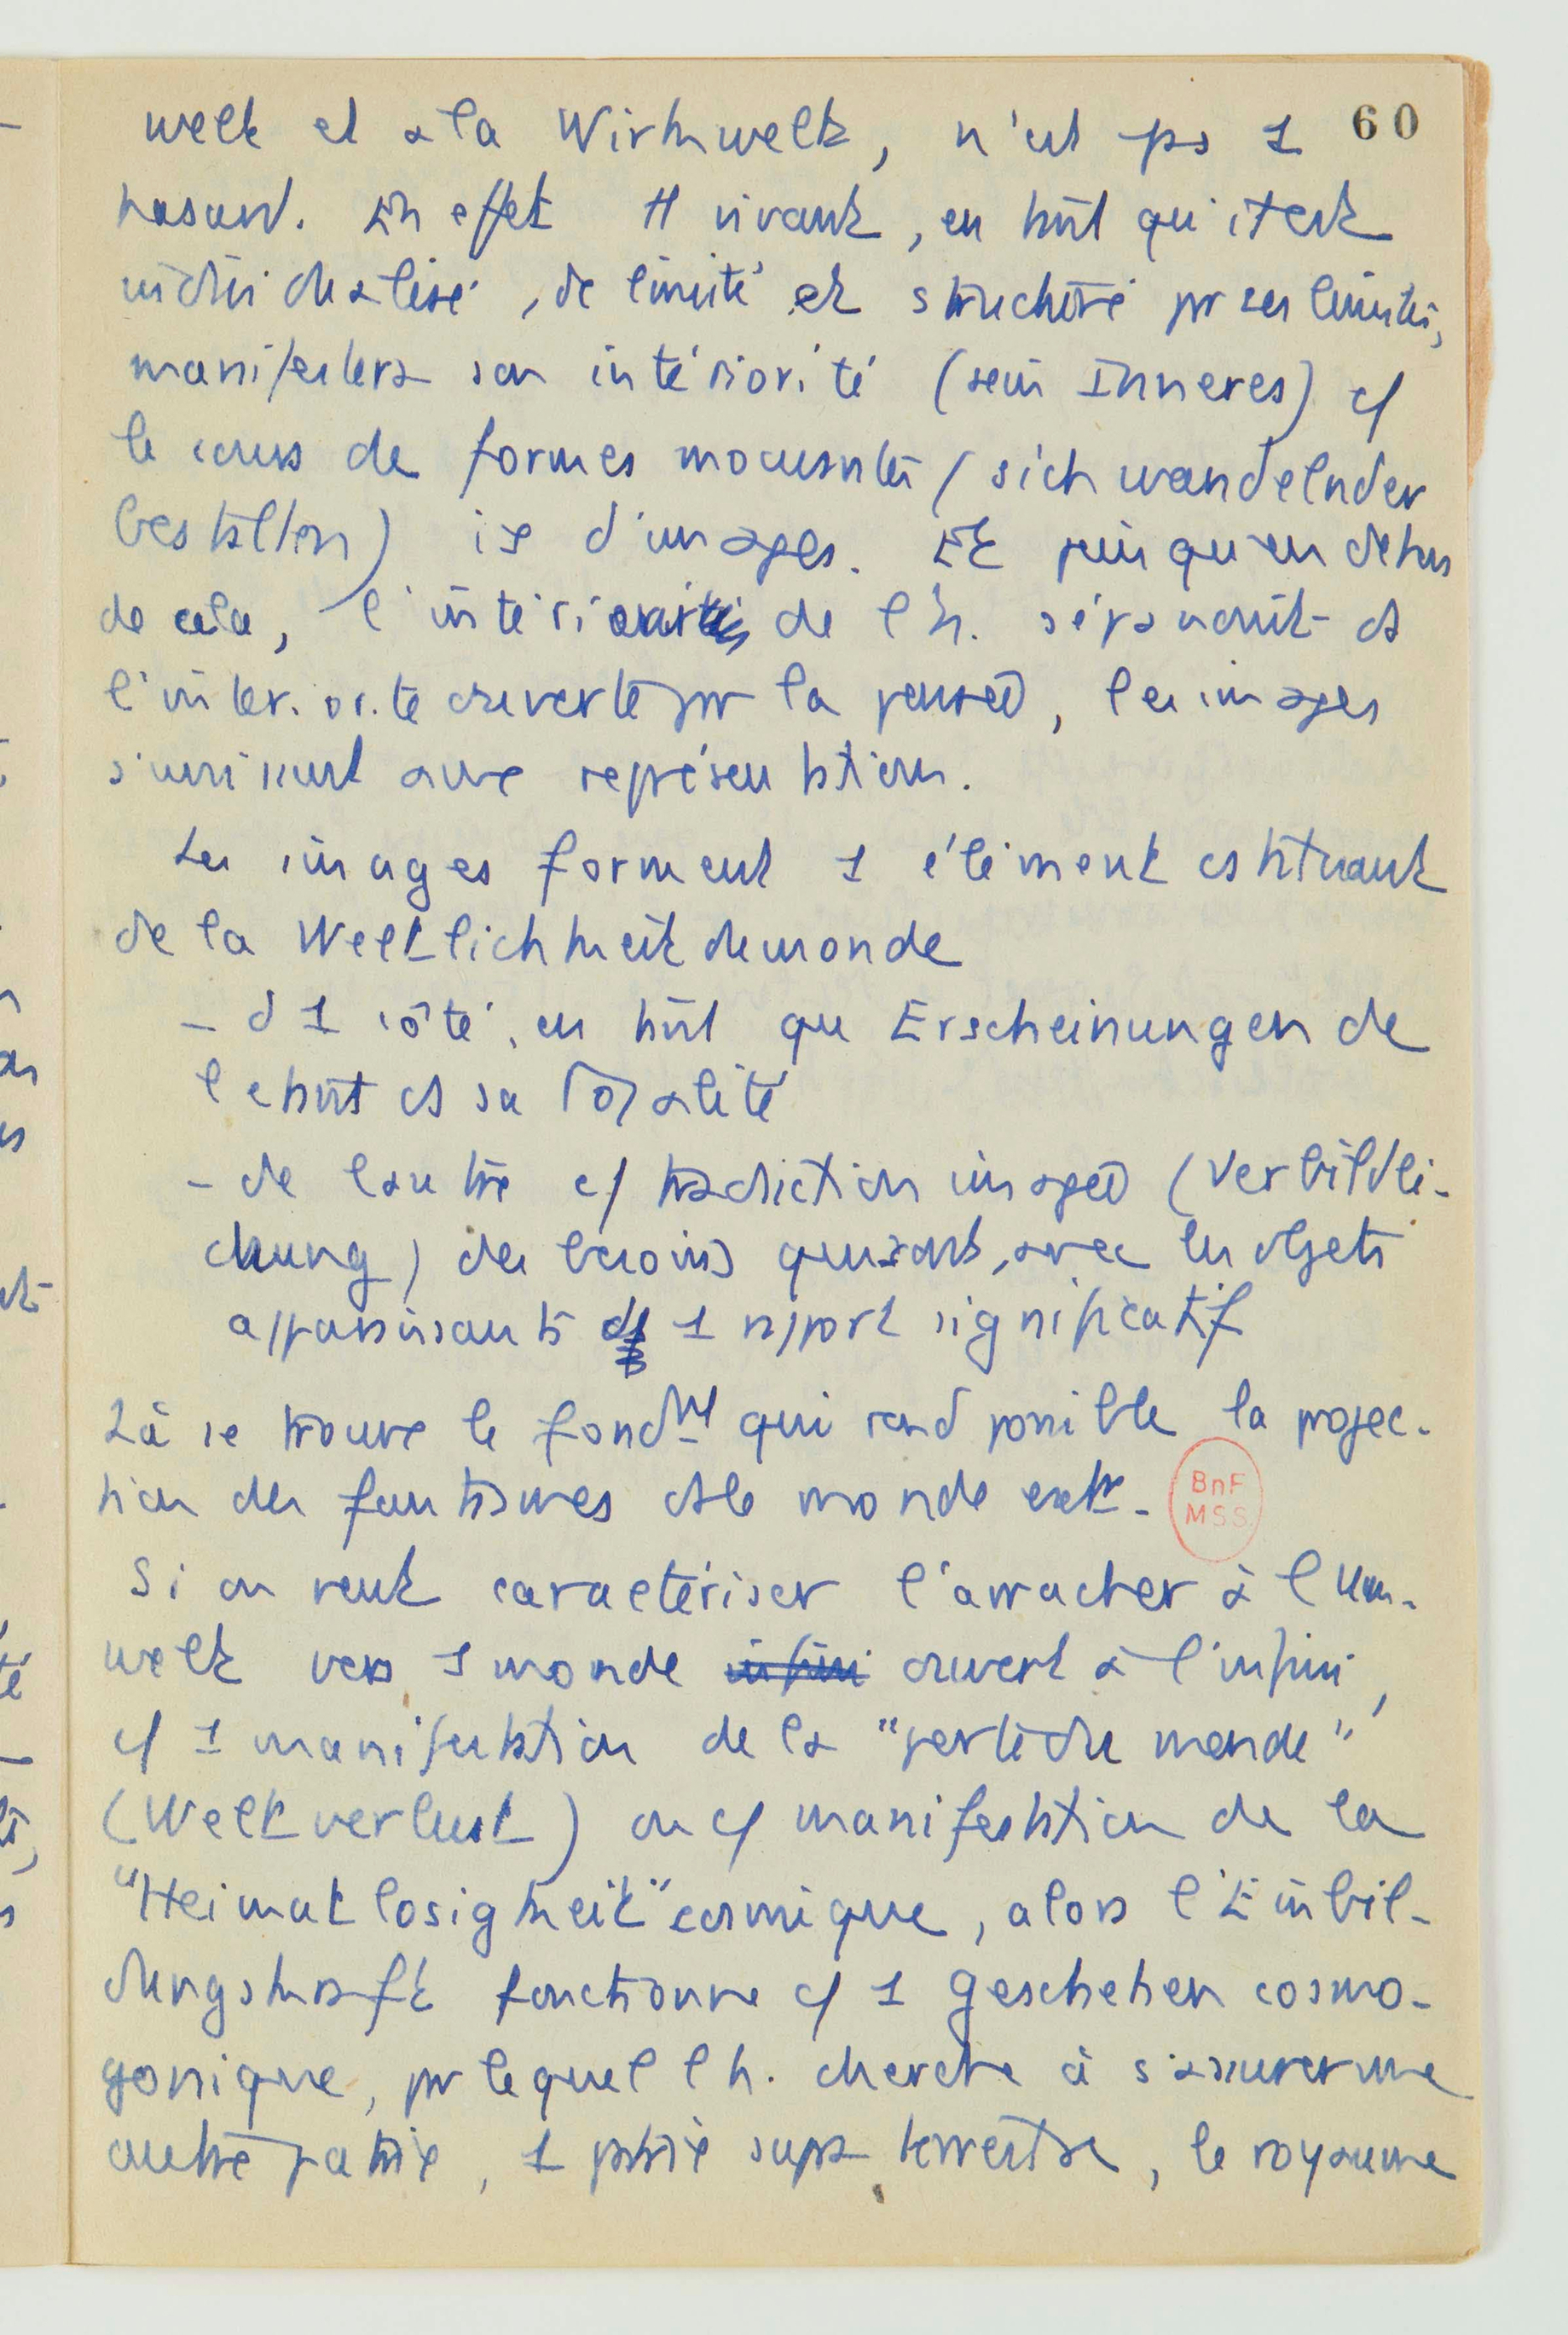 60
welt et à la Wirkwelt, n'est ps 1
hasard. En effet tt vivant, en tant qu'il est
individualisé, délimité et structuré pr ses limites,
manifestera son intériorité (sein Inneres) c/
le cours de formes mouvantes (sich wandelnder
Gestalten) ie d'images. Et puisqu'en dehors
de cela, l'intériorité de l'h. s'épanouit ds
l'intériorité ouverte pr la pensée, les images
s'unissent avec représentation.
Les images forment 1 élément cstituant
de la Weltlichkeit du monde
- d'1 côté, en tant que Erscheinungen de
l'étant ds sa totalité
- de l'autre c/ traduction imagée (Verbildli-
chung) des besoins qui sont, avec les objets
apparaissants ds 1 rapport significatif
Là se trouve le fondmt qui rend possible la projec-
tion des fantasmes ds le monde extr.
BnF
MSS
Si on veut caractériser l'arracher à l'Um-
welt vers 1 monde infini ouvert à l'infini,
c/ 1 manifestation de la "perte du monde"
(Weltverlust) ou c/ manifestation de la
"Heimatlosigkeit" cosmique, alors l'Einbil-
dungskraft fonctionne c/ 1 Geschehen cosmo-
gonique, pr lequel l'h. cherche à s'assurer une
autre patrie, 1 patrie supra terrestre, le royaume